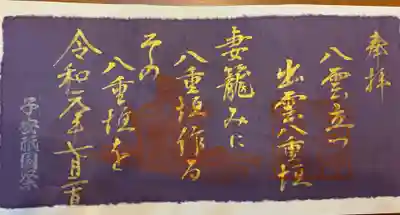 奉拝
八雲立つ
出雲八重垣
妻籠みに
八重垣作る
その
八重垣を
令和元年七月二日
祇園祭